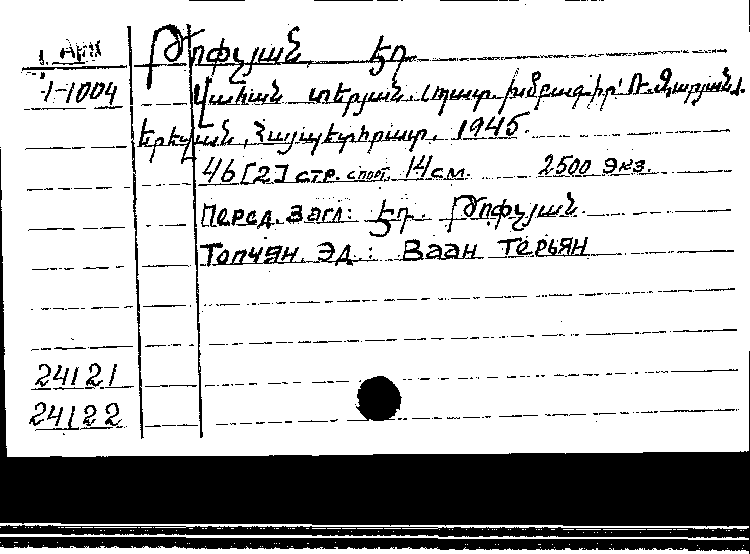 1. Арм Թոփչյան Էդ.
1-1004 Վահան տերյան. (պատ. խմբագիր՝ Ռ. Զարյան).
Երեվան, Հայպետհրատ, 1945.
46 [2] стр. с порт. 14 см. 2500 экз.
Перед. загл: Էդ. Թոփչյան.
Топчян. Эд.: Ваан Терьян
24121
24122